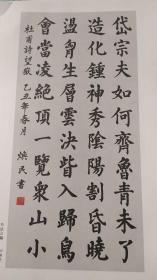 岱宗夫如何齊魯青未了
造化鍾神秀陰陽割昏曉
盪胷生層雲決眥入歸鳥
會當凌絕頂一覽衆山小
杜甫詩望嶽 乙丑年春月 煥民書